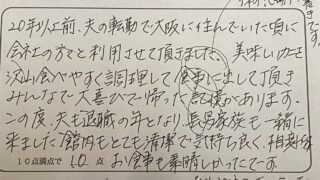 20年以上前、夫の転勤で大阪に住んでいた頃に
会社の方と利用させて頂きました。美味しいカニを
沢山食べやすく調理して食事に出して頂き
みんなで大喜びで帰った記憶があります。
この度、夫も退職の年となり、長男家族も一緒に
来ました。館内もとても清潔で気持ち良く、相変わらず
10点満点で 10 点 お食事も素晴しかったでーす